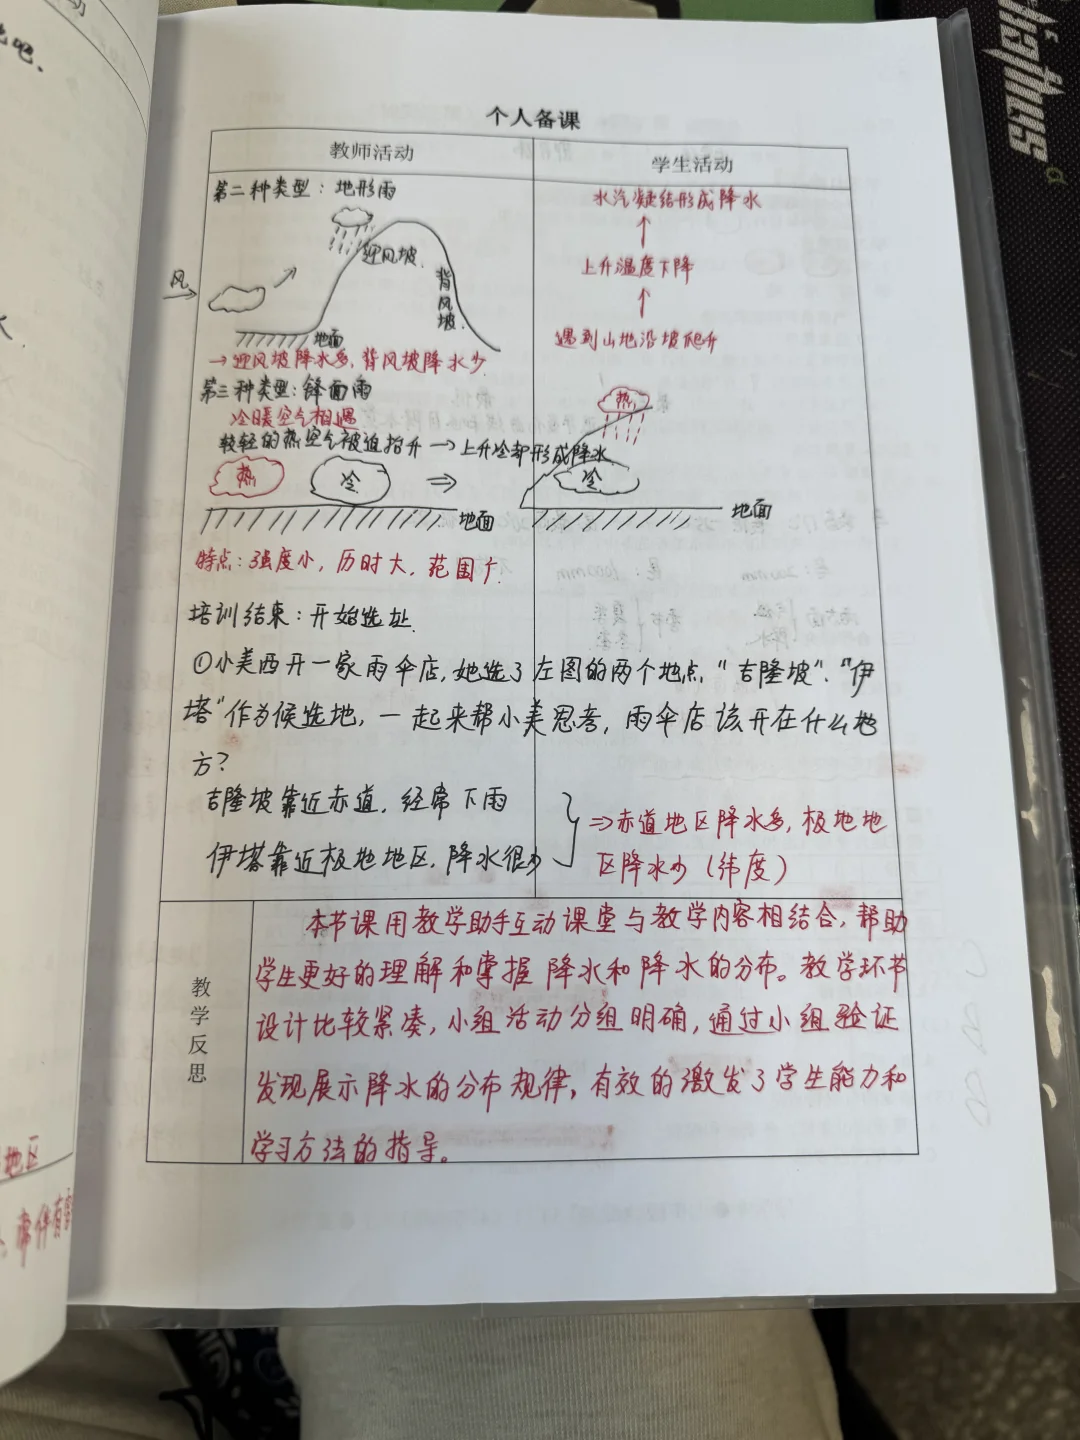 个人备课
教师活动
学生活动
第二种类型：地形雨
迎风坡
背风坡
风
地面
→迎风坡降水多，背风坡降水少
水汽凝结形成降水
↑
上升温度下降
↑
遇到山地沿坡爬升
第三种类型：锋面雨
冷暖空气相遇
较轻的热空气被迫抬升→上升冷却形成降水
热
冷
⇒
地面
热
冷
地面
特点：强度小，历时大，范围广
培训结束：开始选址
①小美西开一家雨伞店，她选了左图的两个地点，“吉隆坡”、“伊
塔”作为候选地，一起来帮小美思考，雨伞店该开在什么地
方？
吉隆坡靠近赤道，经常下雨
伊塔靠近极地地区，降水很少
⇒赤道地区降水多，极地地
区降水少（纬度）
教学反思
本节课用教学助手互动课堂与教学内容相结合，帮助
学生更好的理解和掌握降水和降水的分布。教学环节
设计比较紧凑，小组活动分组明确，通过小组验证
发现展示降水的分布规律，有效的激发了学生能力和
学习方法的指导。
地区
常伴有雷